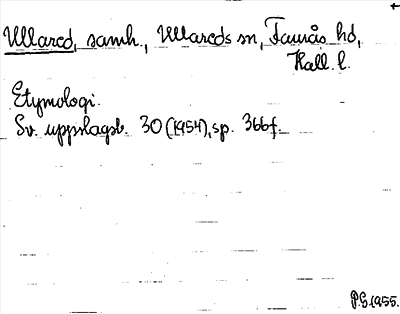 Ullared, samh., Ullareds sn, Faurås hd,
Hall. l.
Etymologi.
Sv. uppslagsb. 30 (1954), sp. 366f.
P.G. 1955.